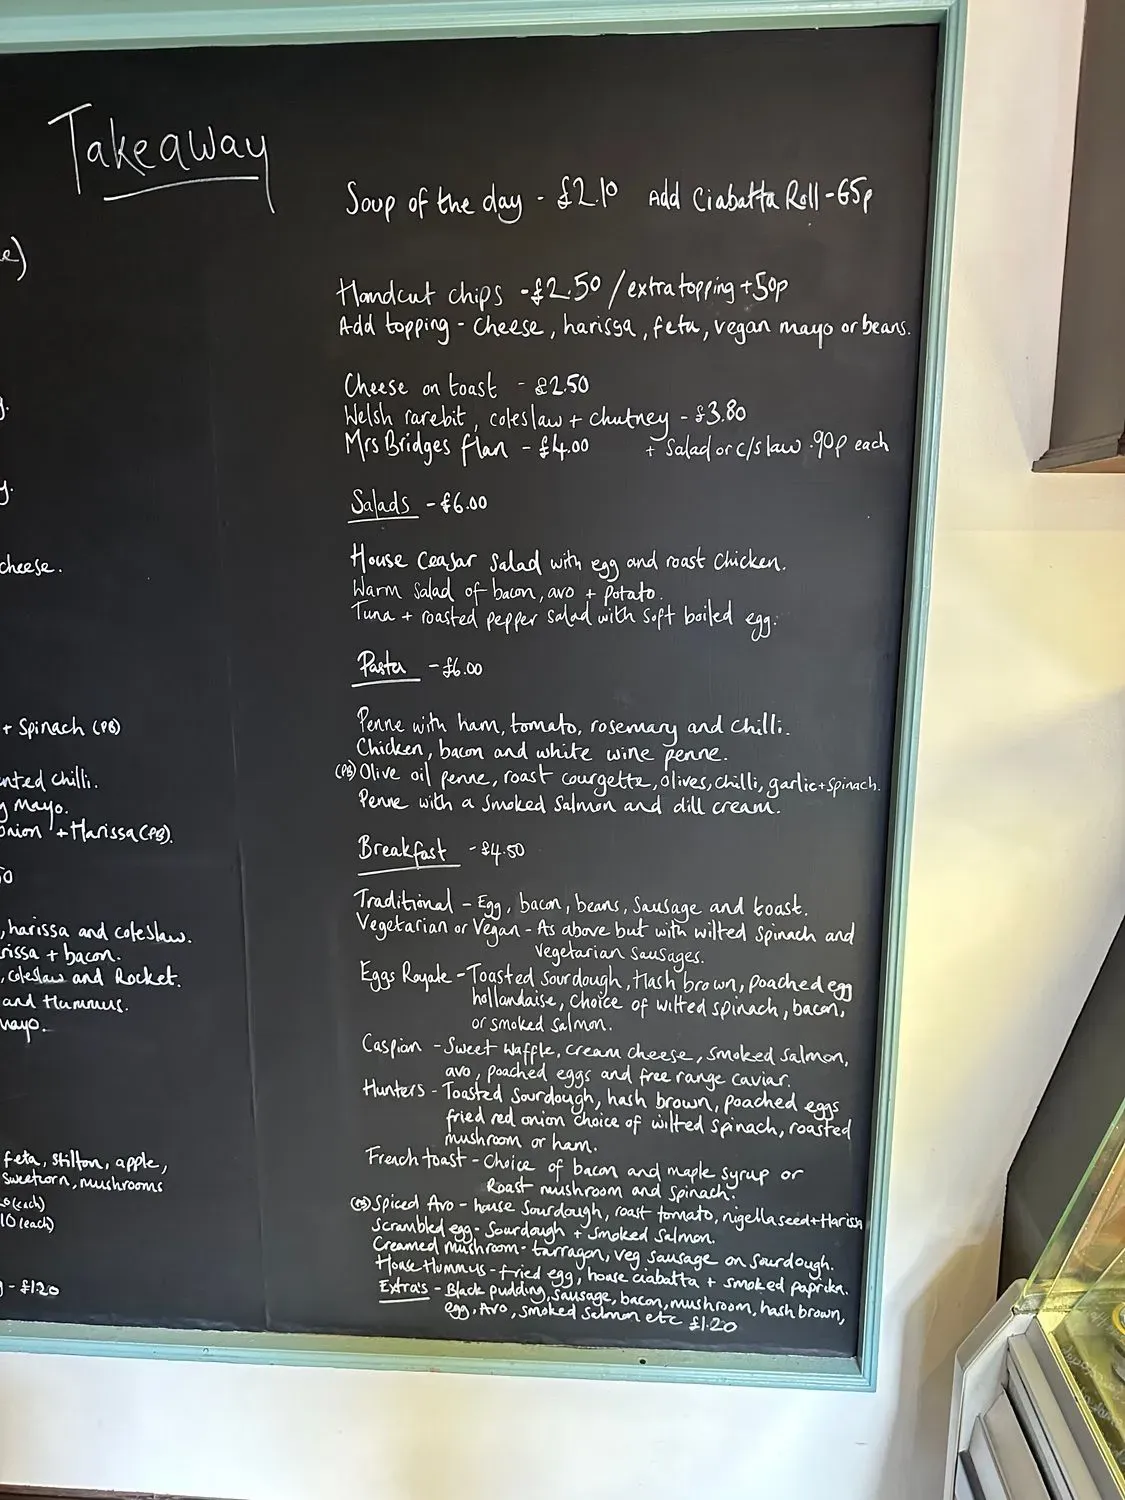 Takeaway
Soup of the day - £2.10 Add Ciabatta Roll - 65p
Handcut chips - £2.50 / extra topping + 50p
Add topping - cheese, harissa, feta, vegan mayo or beans.
Cheese on toast - £2.50
Welsh rarebit, coleslaw + chutney - £3.80
Mrs Bridges flan - £4.00 + Salad or c/slaw .90p each
Salads - £6.00
House Ceasar Salad with egg and roast chicken.
Warm Salad of bacon, avo + potato.
Tuna + roasted pepper salad with soft boiled egg.
Pasta - £6.00
Penne with ham, tomato, rosemary and chilli.
Chicken, bacon and white wine penne.
(PB) Olive oil penne, roast courgette, olives, chilli, garlic + spinach.
Penne with a smoked salmon and dill cream.
Breakfast - £4.50
Traditional - Egg, bacon, beans, sausage and toast.
Vegetarian or Vegan - As above but with wilted spinach and
vegetarian sausages.
Eggs Royale - Toasted sourdough, Hash brown, poached egg
hollandaise, choice of wilted spinach, bacon,
or smoked salmon.
Caspian - Sweet waffle, cream cheese, smoked salmon,
avo, poached eggs and free range caviar.
Hunters - Toasted sourdough, hash brown, poached eggs
fried red onion choice of wilted spinach, roasted
mushroom or ham.
French toast - Choice of bacon and maple syrup or
Roast mushroom and spinach.
(PB) Spiced Avo - house sourdough, roast tomato, nigella seed +
Scrambled egg - Sourdough + smoked salmon.
Creamed mushroom - tarragon, veg sausage on sourdough.
House Hummus - fried egg, house ciabatta + smoked paprika.
Extra's - Black pudding, sausage, bacon, mushroom, hash brown,
egg, Avo, smoked salmon etc £1.20
cheese.
+ Spinach (PB)
chilli.
Mayo.
+ Harissa (PB).
, harissa and coleslaw.
+ bacon.
, coleslaw and Rocket.
and Hummus.
feta, stilton, apple,
sweetcorn, mushrooms
(each)
(each)
- £1.20